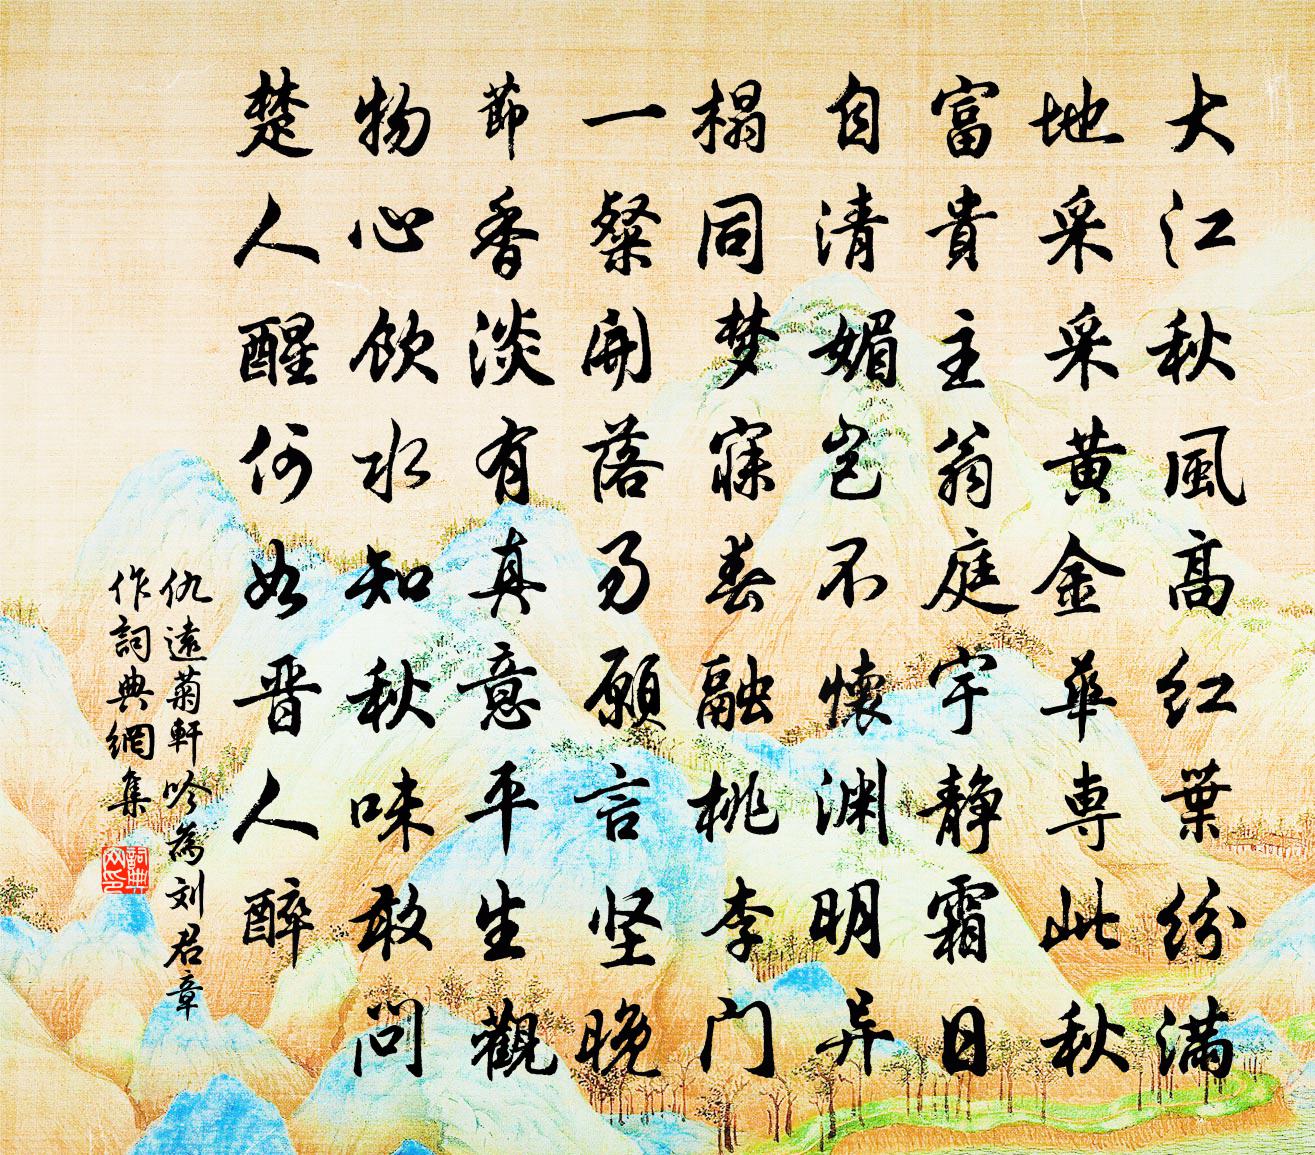 大江秋風高红葉纷满
地采采黄金華専此秋
富貴主翁庭宇静霜日
自清媚岂不懷渊明异
榻同梦寐春融桃李门
一粲開落易願言坚晚
節香淡有真意平生觀
物心飲水知秋味敢问
楚人醒何如晋人醉
仇遠菊軒吟為刘君章
作詞典網集
詞典
网印